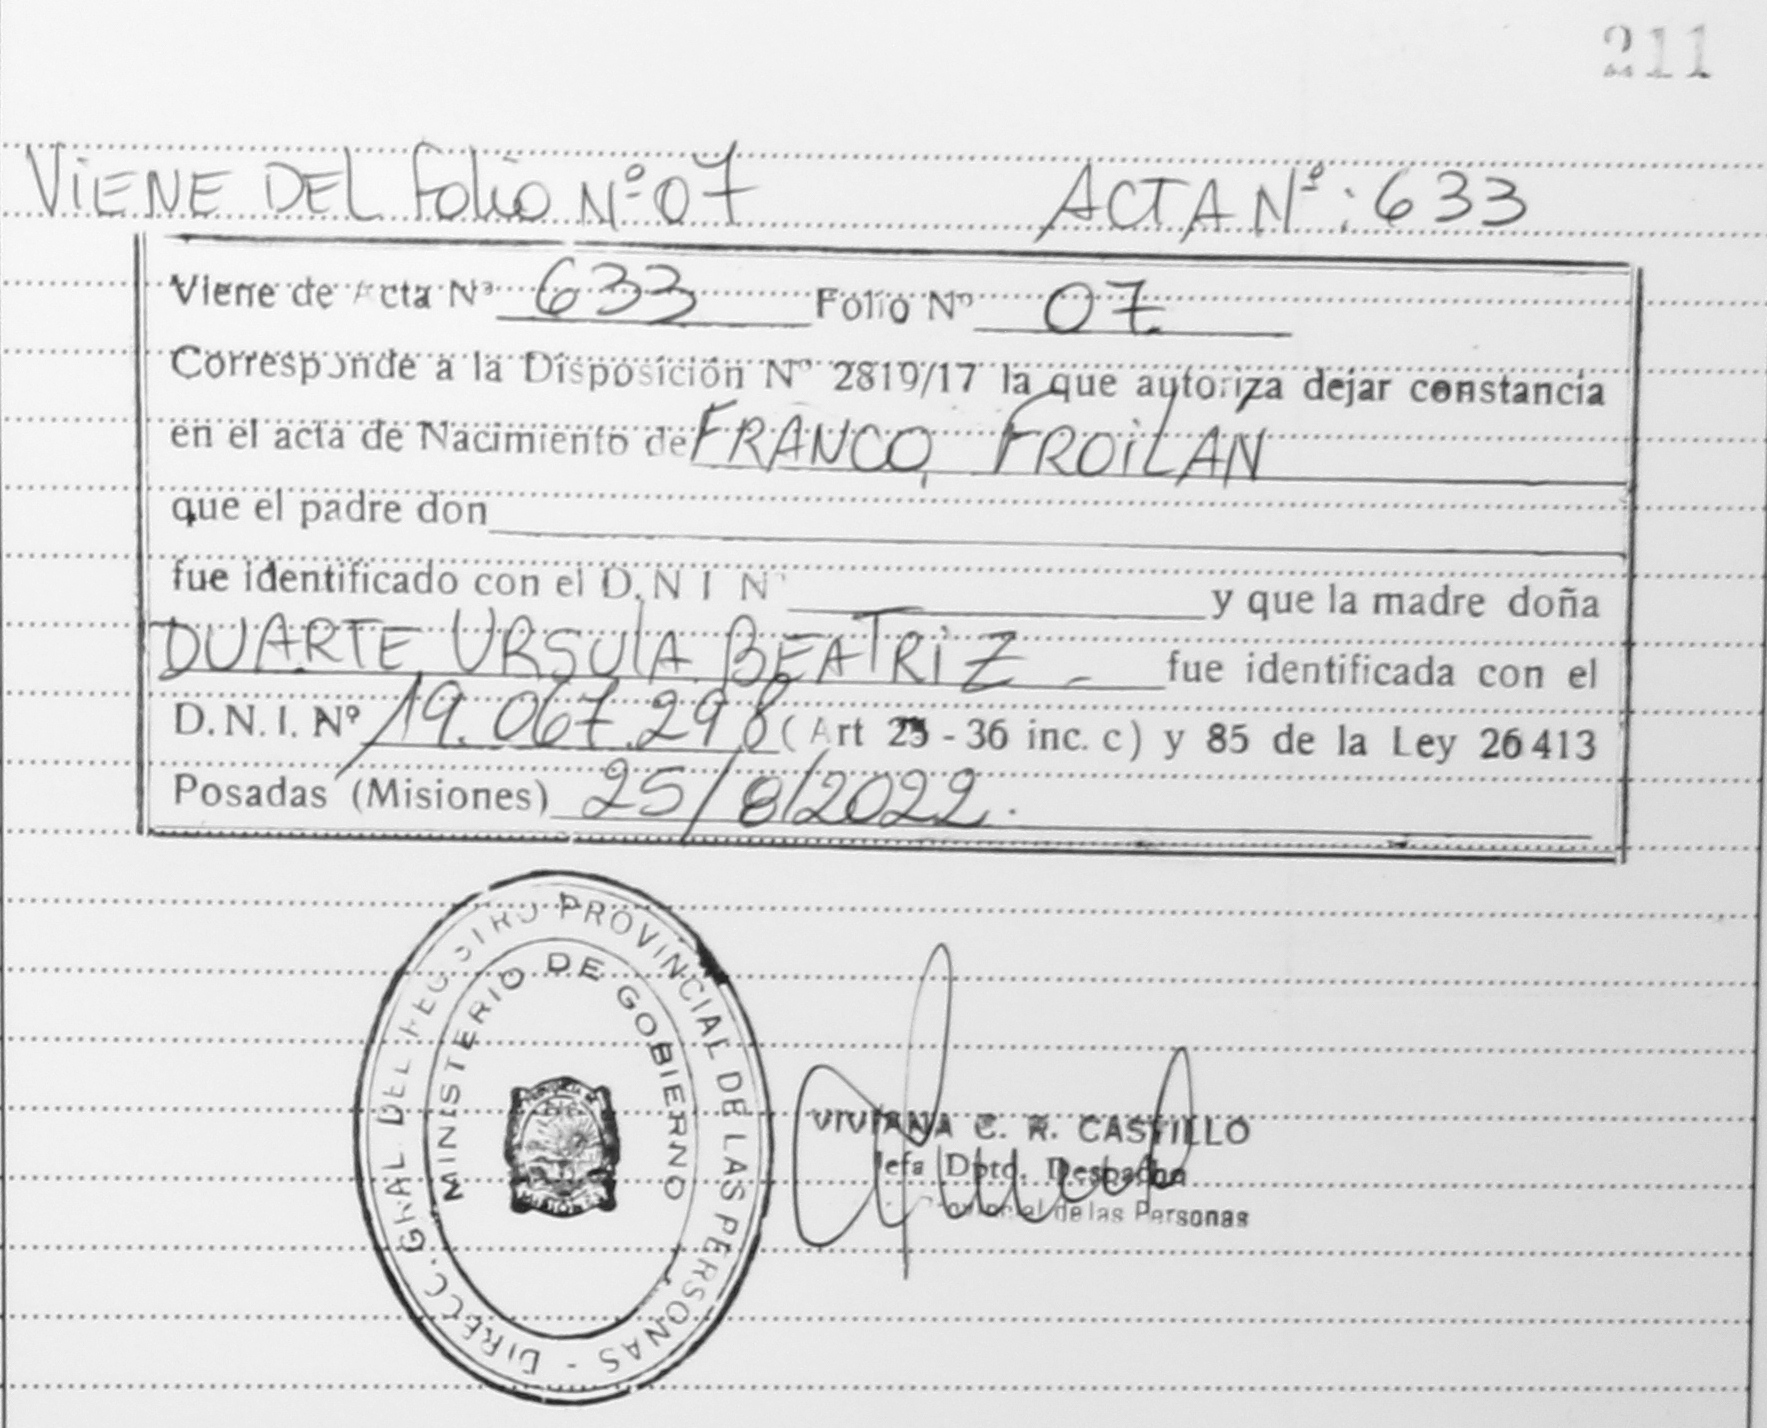 211
VIENE DEL Folio Nº 07 ACTA Nº: 633
Viene de Acta Nº 633 Folio Nº 07
Corresponde a la Disposición Nº 2819/17 la que autoriza dejar constancia
en el acta de Nacimiento de FRANCO, FROILÁN
que el padre don
fue identificado con el D.N I N° y que la madre doña
DUARTE URSULA BEATRIZ - fue identificada con el
D.N.I. Nº 19.067.298 (Art 25 - 36 inc. c) y 85 de la Ley 26413
Posadas (Misiones) 25/8/2022.
DIRECC. GRAL DEL REGISTRO PROVINCIAL DE LAS PERSONAS -
MINISTERIO DE GOBIERNO
MISIONES
VIVIANA C. R. CASTILLO
Jefa Dpto. Despacho
Provincial de las Personas